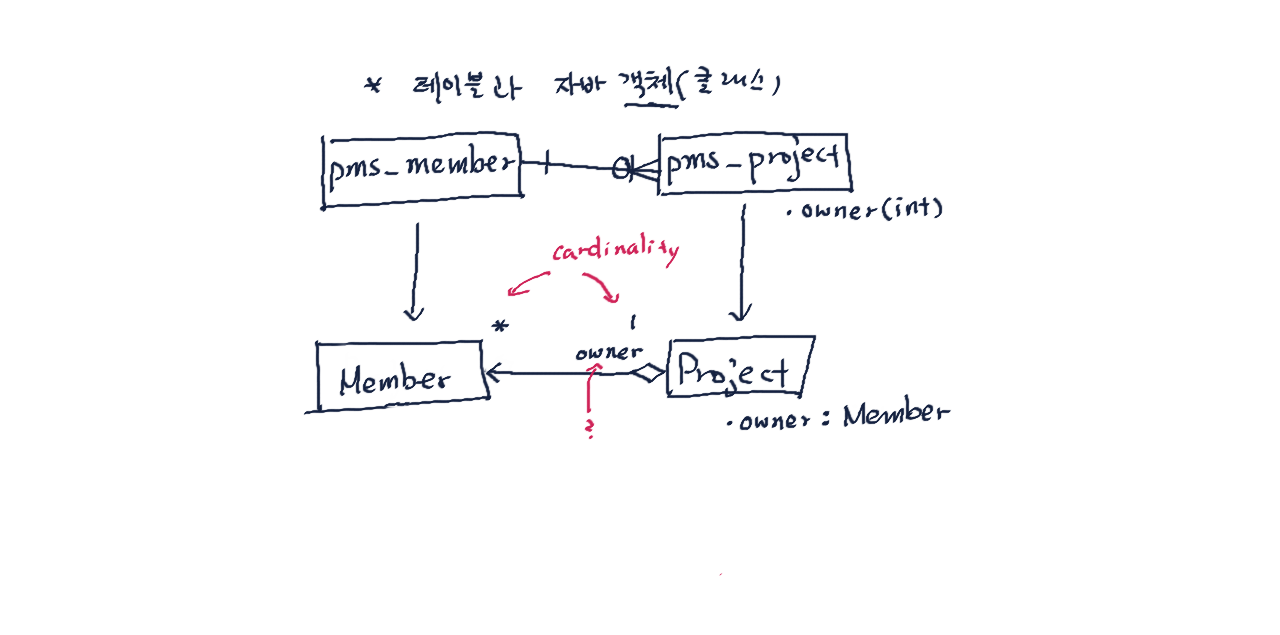 * 테이블과 자바 객체(클래스)
pms_member
pms_project
• owner(int)
cardinality
*
1
owner
Member
Project
• owner : Member
?